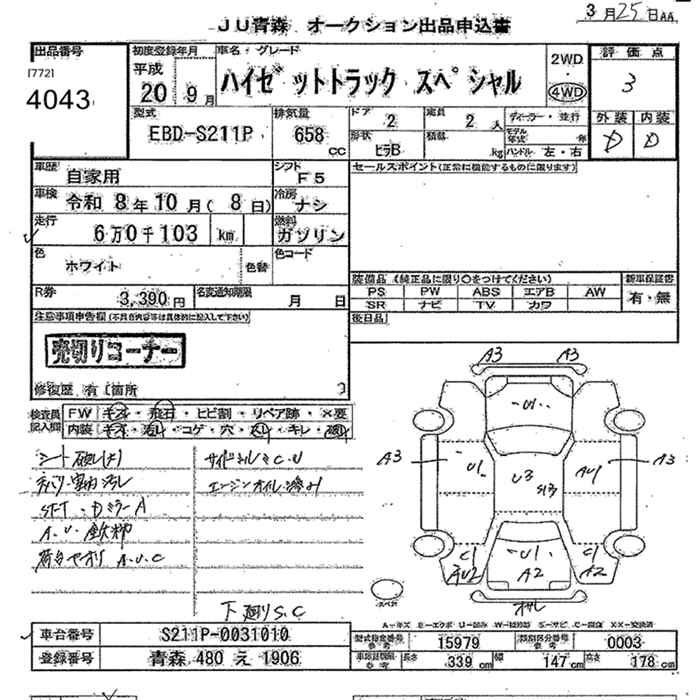 3月25日AA
JU青森 オークション出品申込書
出品番号
[772]
4043
初度登録年月
平成
20 9月
車名・グレード
ハイゼットトラック スペシャル
2WD
・
4WD
評価点
3
外装 内装
D D
型式
EBD-S211P
排気量
658
CC
ドア
2
定員
2 人
ディーラー・並行
形状
ピラB
積載
kg
モデル年式 年
ハンドル 左・右
車歴
自家用
シフト
F5
車検
令和 8年10月(8日)
冷房
ナシ
走行
6万0千103 km
燃料
ガソリン
色
ホワイト
色替
色コード
R券
3,390円
名変通知期限
月 日
セールスポイント(正常に機能するものに限ります)
装備品 (純正品に限り○をつけてください)
新車保証書
PS PW ABS エアB AW
有・無
SR ナビ TV カワ
後日品
注意事項申告欄(不具合内容等は具体的に記入して下さい)
売切りコーナー
修復歴 有〔箇所 〕
検査員記入欄
FW キズ・飛石・ヒビ割・リペア跡・×要
内装 キズ・汚れ・コゲ・穴・スレ・キレ・
シート破れ
サイドシルミC.U
エンジンオイル滲み
A.U
A.U.C
下廻りS.C
A3 A3
U1
A3 U1 U3 S13 AU1 A3
C1 U1 C1
AU2 A2 A2
スペア
A－キズ E－エクボ U－凹み W－補修跡 S－サビ C－腐蝕 XX－交換済
車台番号
S211P-0031010
登録番号
青森 480 え 1906
型式指定番号 参考
15979
類別区分番号 参考
0003
車両諸元 参考
長さ
339 cm
幅
147 cm
高さ
178 cm